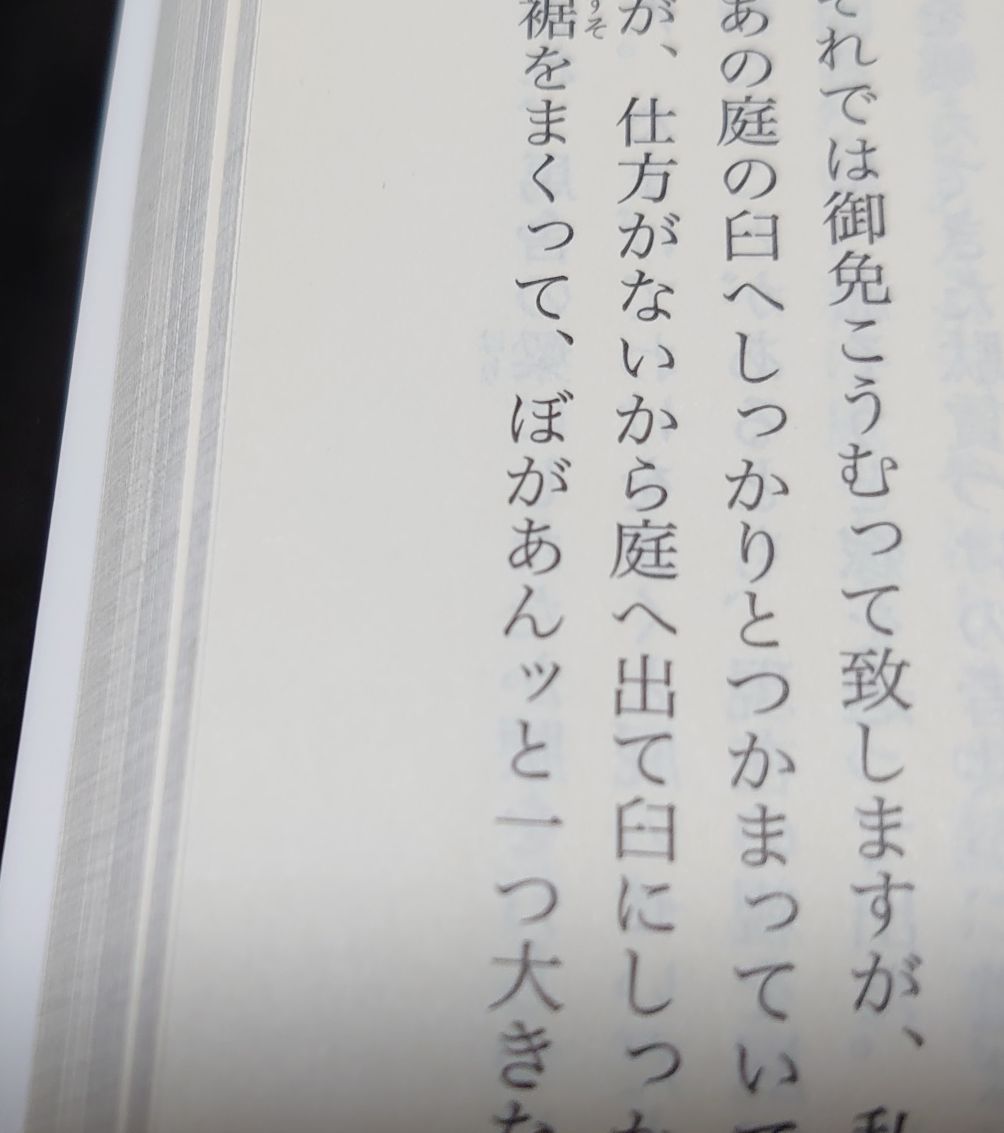 それでは御免こうむって致しますが、私
あの庭の臼へしっかりとつかまっていて
が、仕方がないから庭へ出て臼にしっか
裾をまくって、ぼがあんッと一つ大きな
すそ